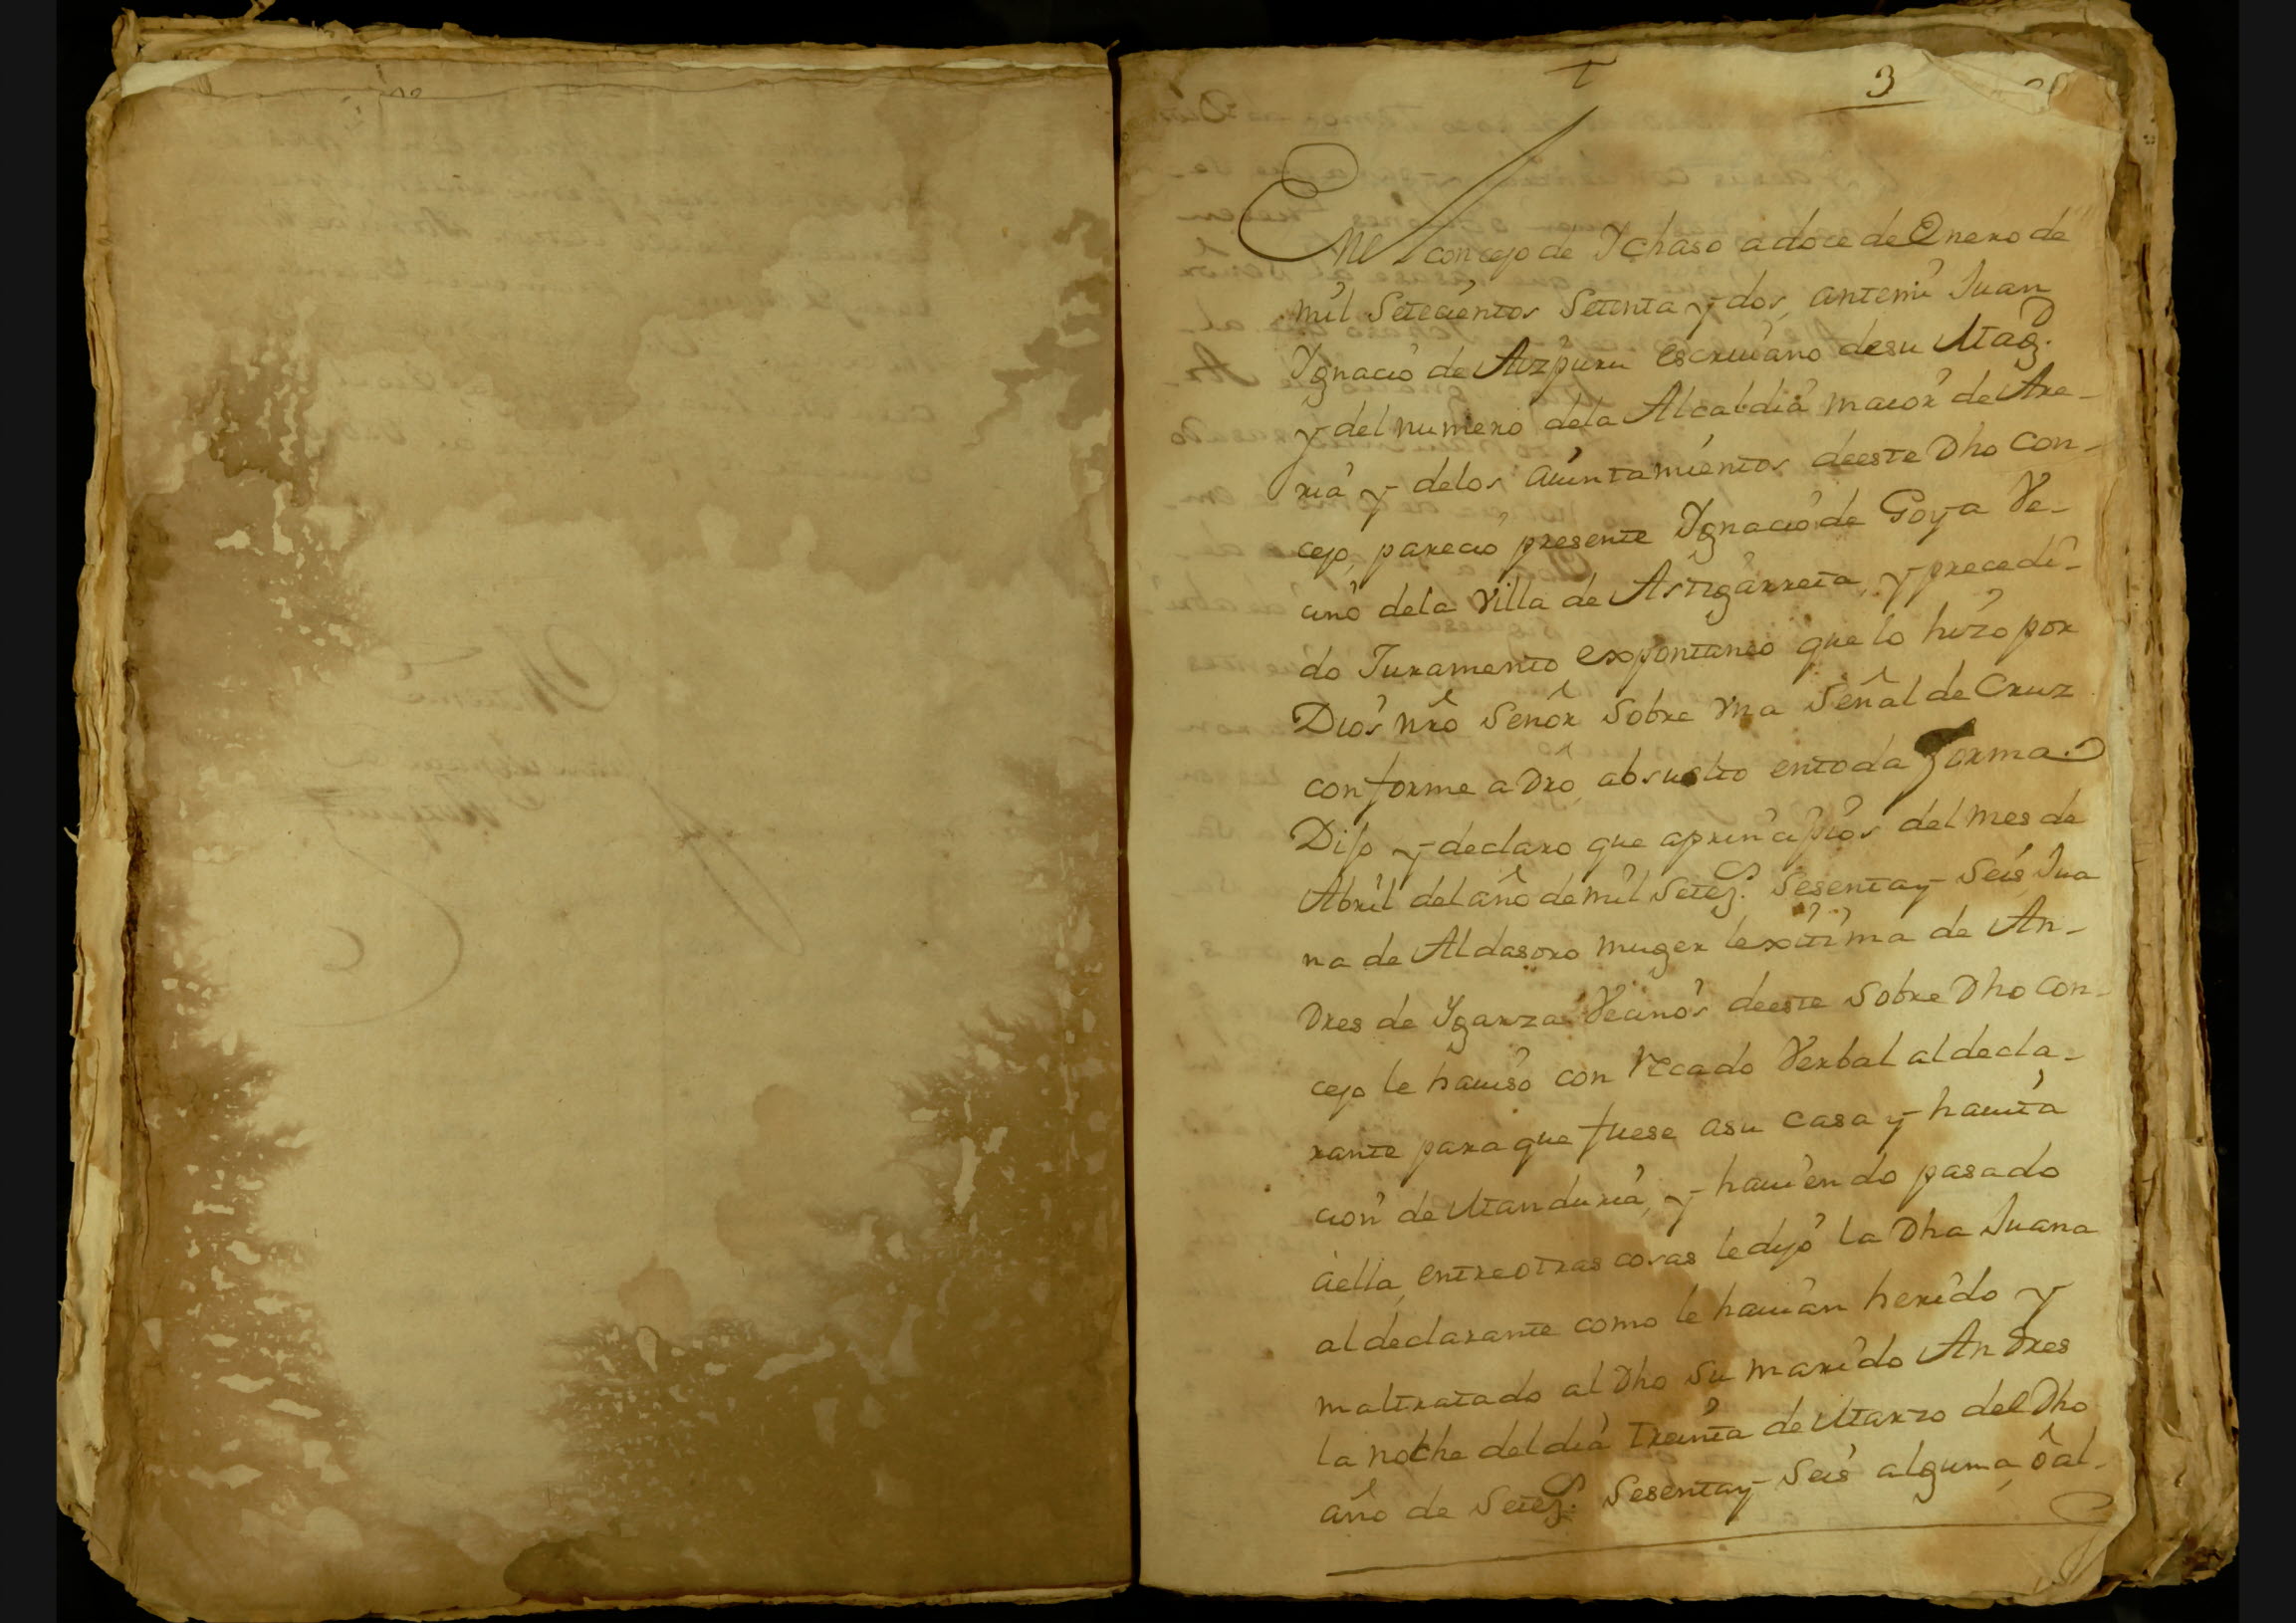 3
Enel concejo de Ychaso a doce de Enero de
mil Setecientos Setenta y dos, antemi Juan
Ygnacio de Aizpuru escriuano desu Mag.
y del numero dela Alcaldia maior de Are-
ria y delos aiuntamientos deeste Dho con-
cejo, parecio presente Ygnacio de Goya Ve-
cino dela Villa de Astigarreta, y precedi-
do Juramento expontaneo que lo hizo por
Dios nrô Señor Sobre vna Señal de Cruz
conforme a Drô, absuelto entoda forma.
Dijo y declaro que aprincipios del mes de
Abril del año de mil Seteẑ. Sesentay Seis Jua
na de Aldasoro muger lexitima de An-
Dres de Ygarza Vecinos deeste Sobre Dho con-
cejo le hauiso con recado Verbal al decla-
rante paraque fuese asu casa y hauita
cion de Manduria, y hauiendo pasado
aella, entreotras cosas ledijo la Dha Juana
aldeclarante como le hauian herido y
maltratado al Dho Su marido AnDres
la noche deldia treinta de Marzo del Dho
año de Seteẑ. Sesentay Seis alguna, ô al-